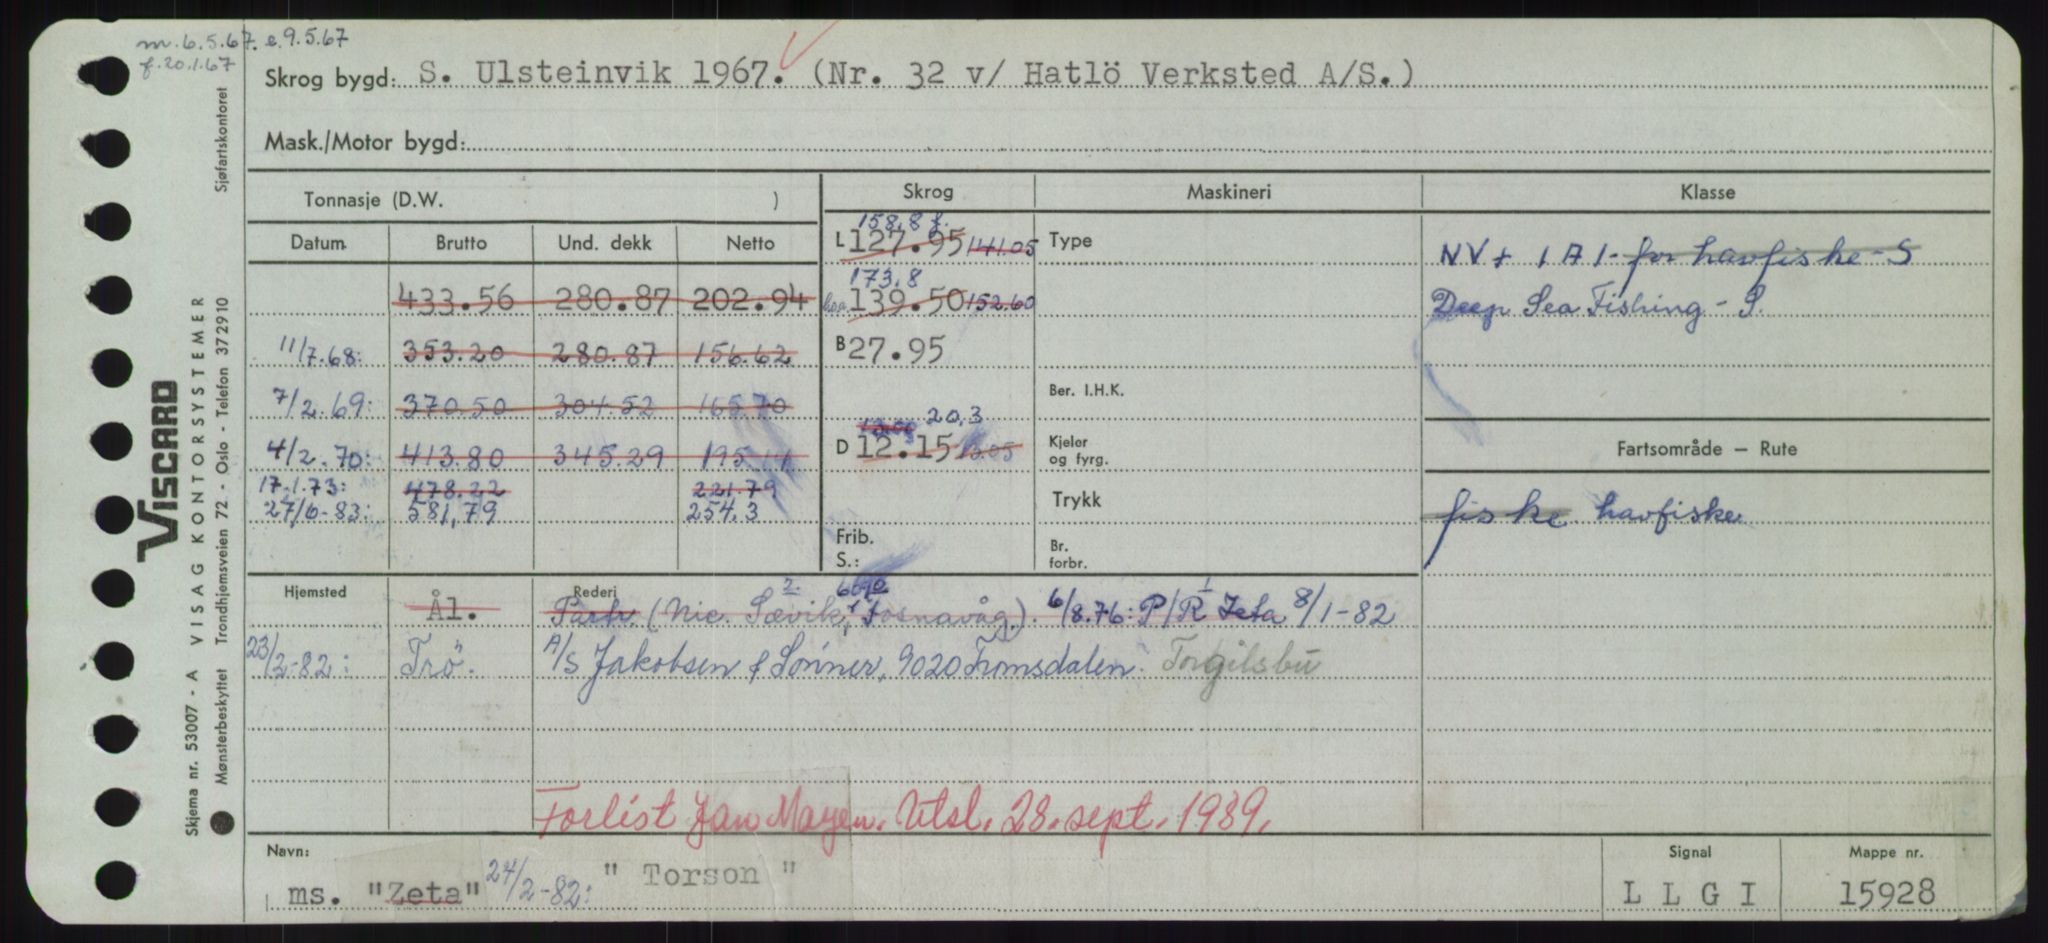 m. 6.5.67. e.9.5.67
f. 20.1.67
Skrog bygd: S. Ulsteinvik 1967. (Nr. 32 v/ Hatlö Verksted A/S.)
Mask./Motor bygd:
Tonnasje (D.W. )
Skrog Maskineri Klasse
Datum Brutto Und. dekk Netto
158,8 f.
L 127.95 141.05 Type
NV+ 1A1 - for havfiske - S
173,8
433.56 280.87 202.94 139.50 152.60
Deep Sea Fishing - S.
11/7.68: 353.20 280.87 156.62 B 27.95
7/2.69: 370.50 304.52 165.70 Ber. I.H.K.
20,3
4/2.70: 413.80 345.29 D 12.15 13.05 Kjeler og fyrg.
Fartsområde – Rute
17.1.73: 478.22 221.79 Trykk
27/6-83: 581,79 254.3
fiske havfiske
Frib. Br.
S.: forbr.
Hjemsted Rederi
Ål. Partr. (Nic. Sævik, 6090 Fosnavåg.) 6/8.76: P/R Zeta 8/1-82
23/2-82: Trö. A/S Jakobsen & Sönner, 9020 Tromsdalen. Torgilsbu
Forlist Jan Mayen. Utsl. 28. sept. 1989.
Navn: Signal Mappe nr.
ms. "Zeta" 24/2-82: " Torson "
L L G I 15928
VISCARD
Skjema nr. 53007 - A VISAG KONTORSYSTEMER
Mønsterbeskyttet Trondhjemsveien 72 - Oslo - Telefon 372910 Sjøfartskontoret